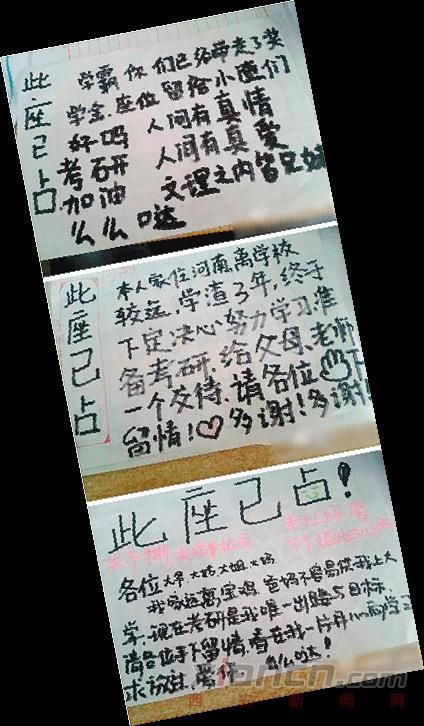 此座已占
学霸你们已经带走了奖
学金.座位留给小渣们
好吗 人间有真情
考研 人间有真爱
加油 文理之内皆兄妹
么么哒
此座已占
本人家住河南,离学校
较远,学渣了年,终于
下定决心努力学习准
备考研.给父母.老师
一个交待.请各位手下
留情!♡多谢!多谢!
此座已占!
各位大爷大妈大姐大妈
我家远离宝鸡,爸妈不容易供我上大
学.现在考研是我唯一出路与目标
请各位手下留情,看在我一片
求放过
么么哒!
xiancn.com
西安新闻网